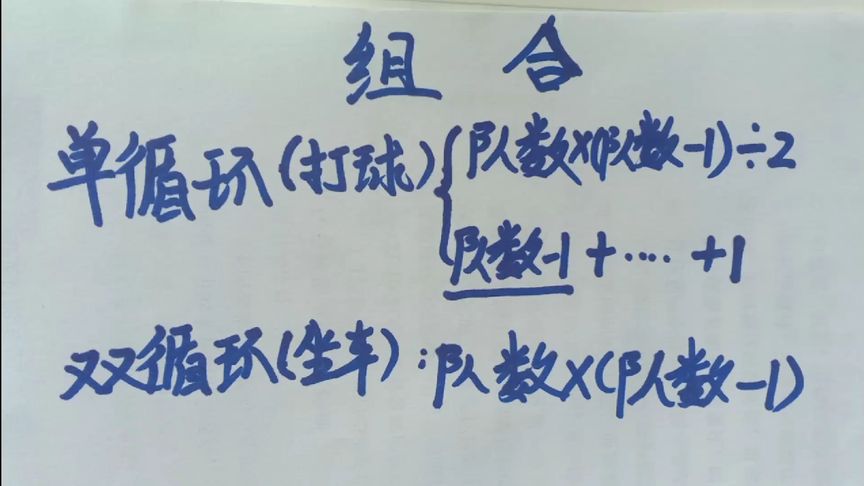 组 合
单循环(打球){队数×(队数-1)÷2
队数-1+····+1
双循环(坐车):队数×(队数-1)